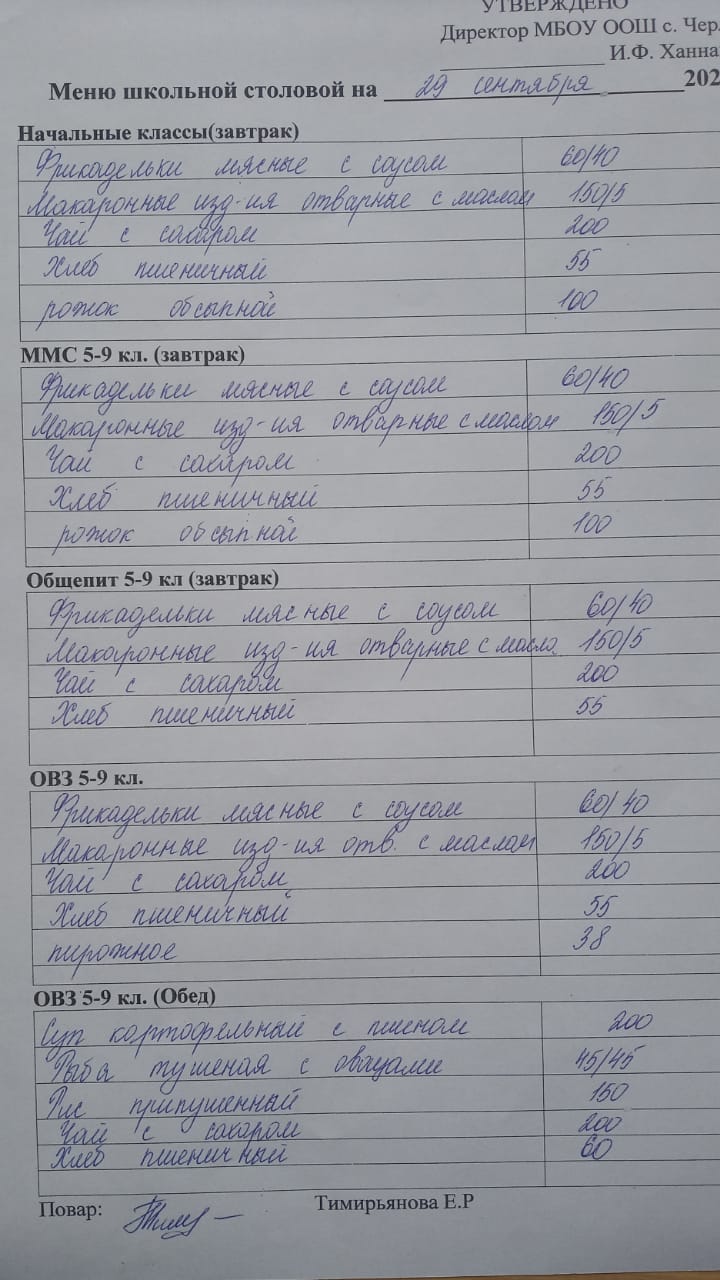 УТВЕРЖДЕНО
Директор МБОУ ООШ с. Чер.
И.Ф. Ханна
Меню школьной столовой на 29 сентября 202
Начальные классы(завтрак)
Фрикадельки мясные с соусом 60/40
Макаронные изд-ия отварные с маслом 150/5
Чай с сахаром 200
Хлеб пшеничный 55
рожок обсыпной 100
ММС 5-9 кл. (завтрак)
Фрикадельки мясные с соусом 60/40
Макаронные изд-ия отварные с маслом 150/5
Чай с сахаром 200
Хлеб пшеничный 55
рожок обсыпной 100
Общепит 5-9 кл (завтрак)
Фрикадельки мясные с соусом 60/40
Макаронные изд-ия отварные с масло. 150/5
Чай с сахаром 200
Хлеб пшеничный 55
ОВЗ 5-9 кл.
Фрикадельки мясные с соусом 60/40
Макаронные изд-ия отв. с маслом 150/5
Чай с сахаром 200
Хлеб пшеничный 55
пирожное 38
ОВЗ 5-9 кл. (Обед)
Суп картофельный с пшеном 200
Рыба тушеная с овощами 45/45
Рис припушенный 150
Чай с сахаром 200
Хлеб пшеничный 60
Повар: Тимирьянова Е.Р